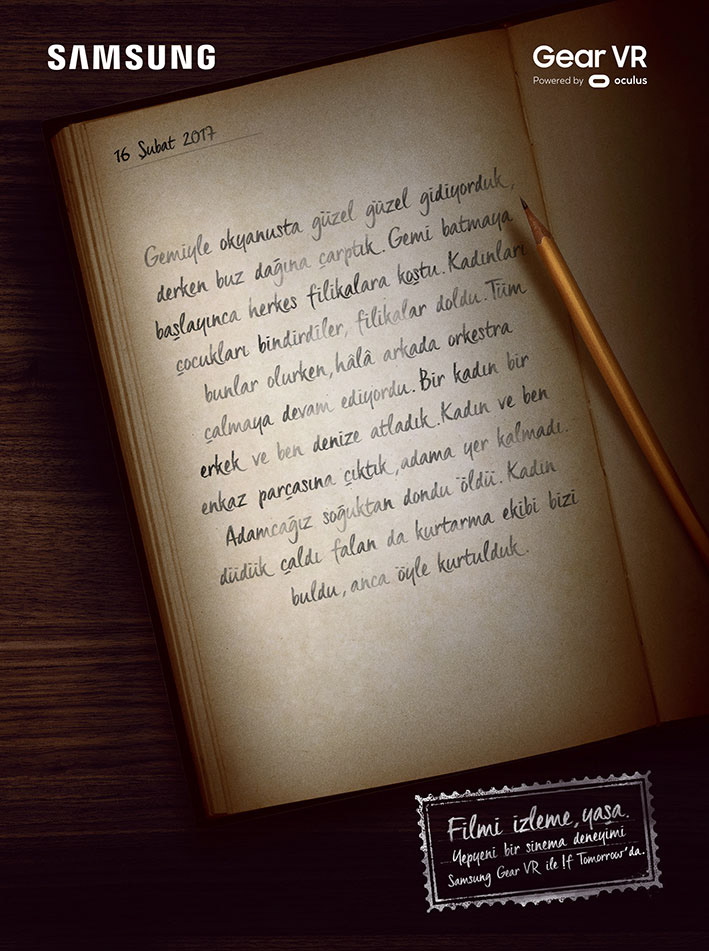 SAMSUNG
Gear VR
Powered by oculus
16 Şubat 2017
Gemiyle okyanusta güzel güzel gidiyorduk,
derken buz dağına çarptık. Gemi batmaya
başlayınca herkes filikalara koştu. Kadınları
çocukları bindirdiler, filikalar doldu. Tüm
bunlar olurken, hâlâ arkada orkestra
çalmaya devam ediyordu. Bir kadın bir
erkek ve ben denize atladık. Kadın ve ben
enkaz parçasına çıktık, adama yer kalmadı.
Adamcağız soğuktan dondu öldü. Kadın
düdük çaldı falan da kurtarma ekibi bizi
buldu, anca öyle kurtulduk.
Filmi izleme, yaşa.
Yepyeni bir sinema deneyimi
Samsung Gear VR ile !f Tomorrow'da.